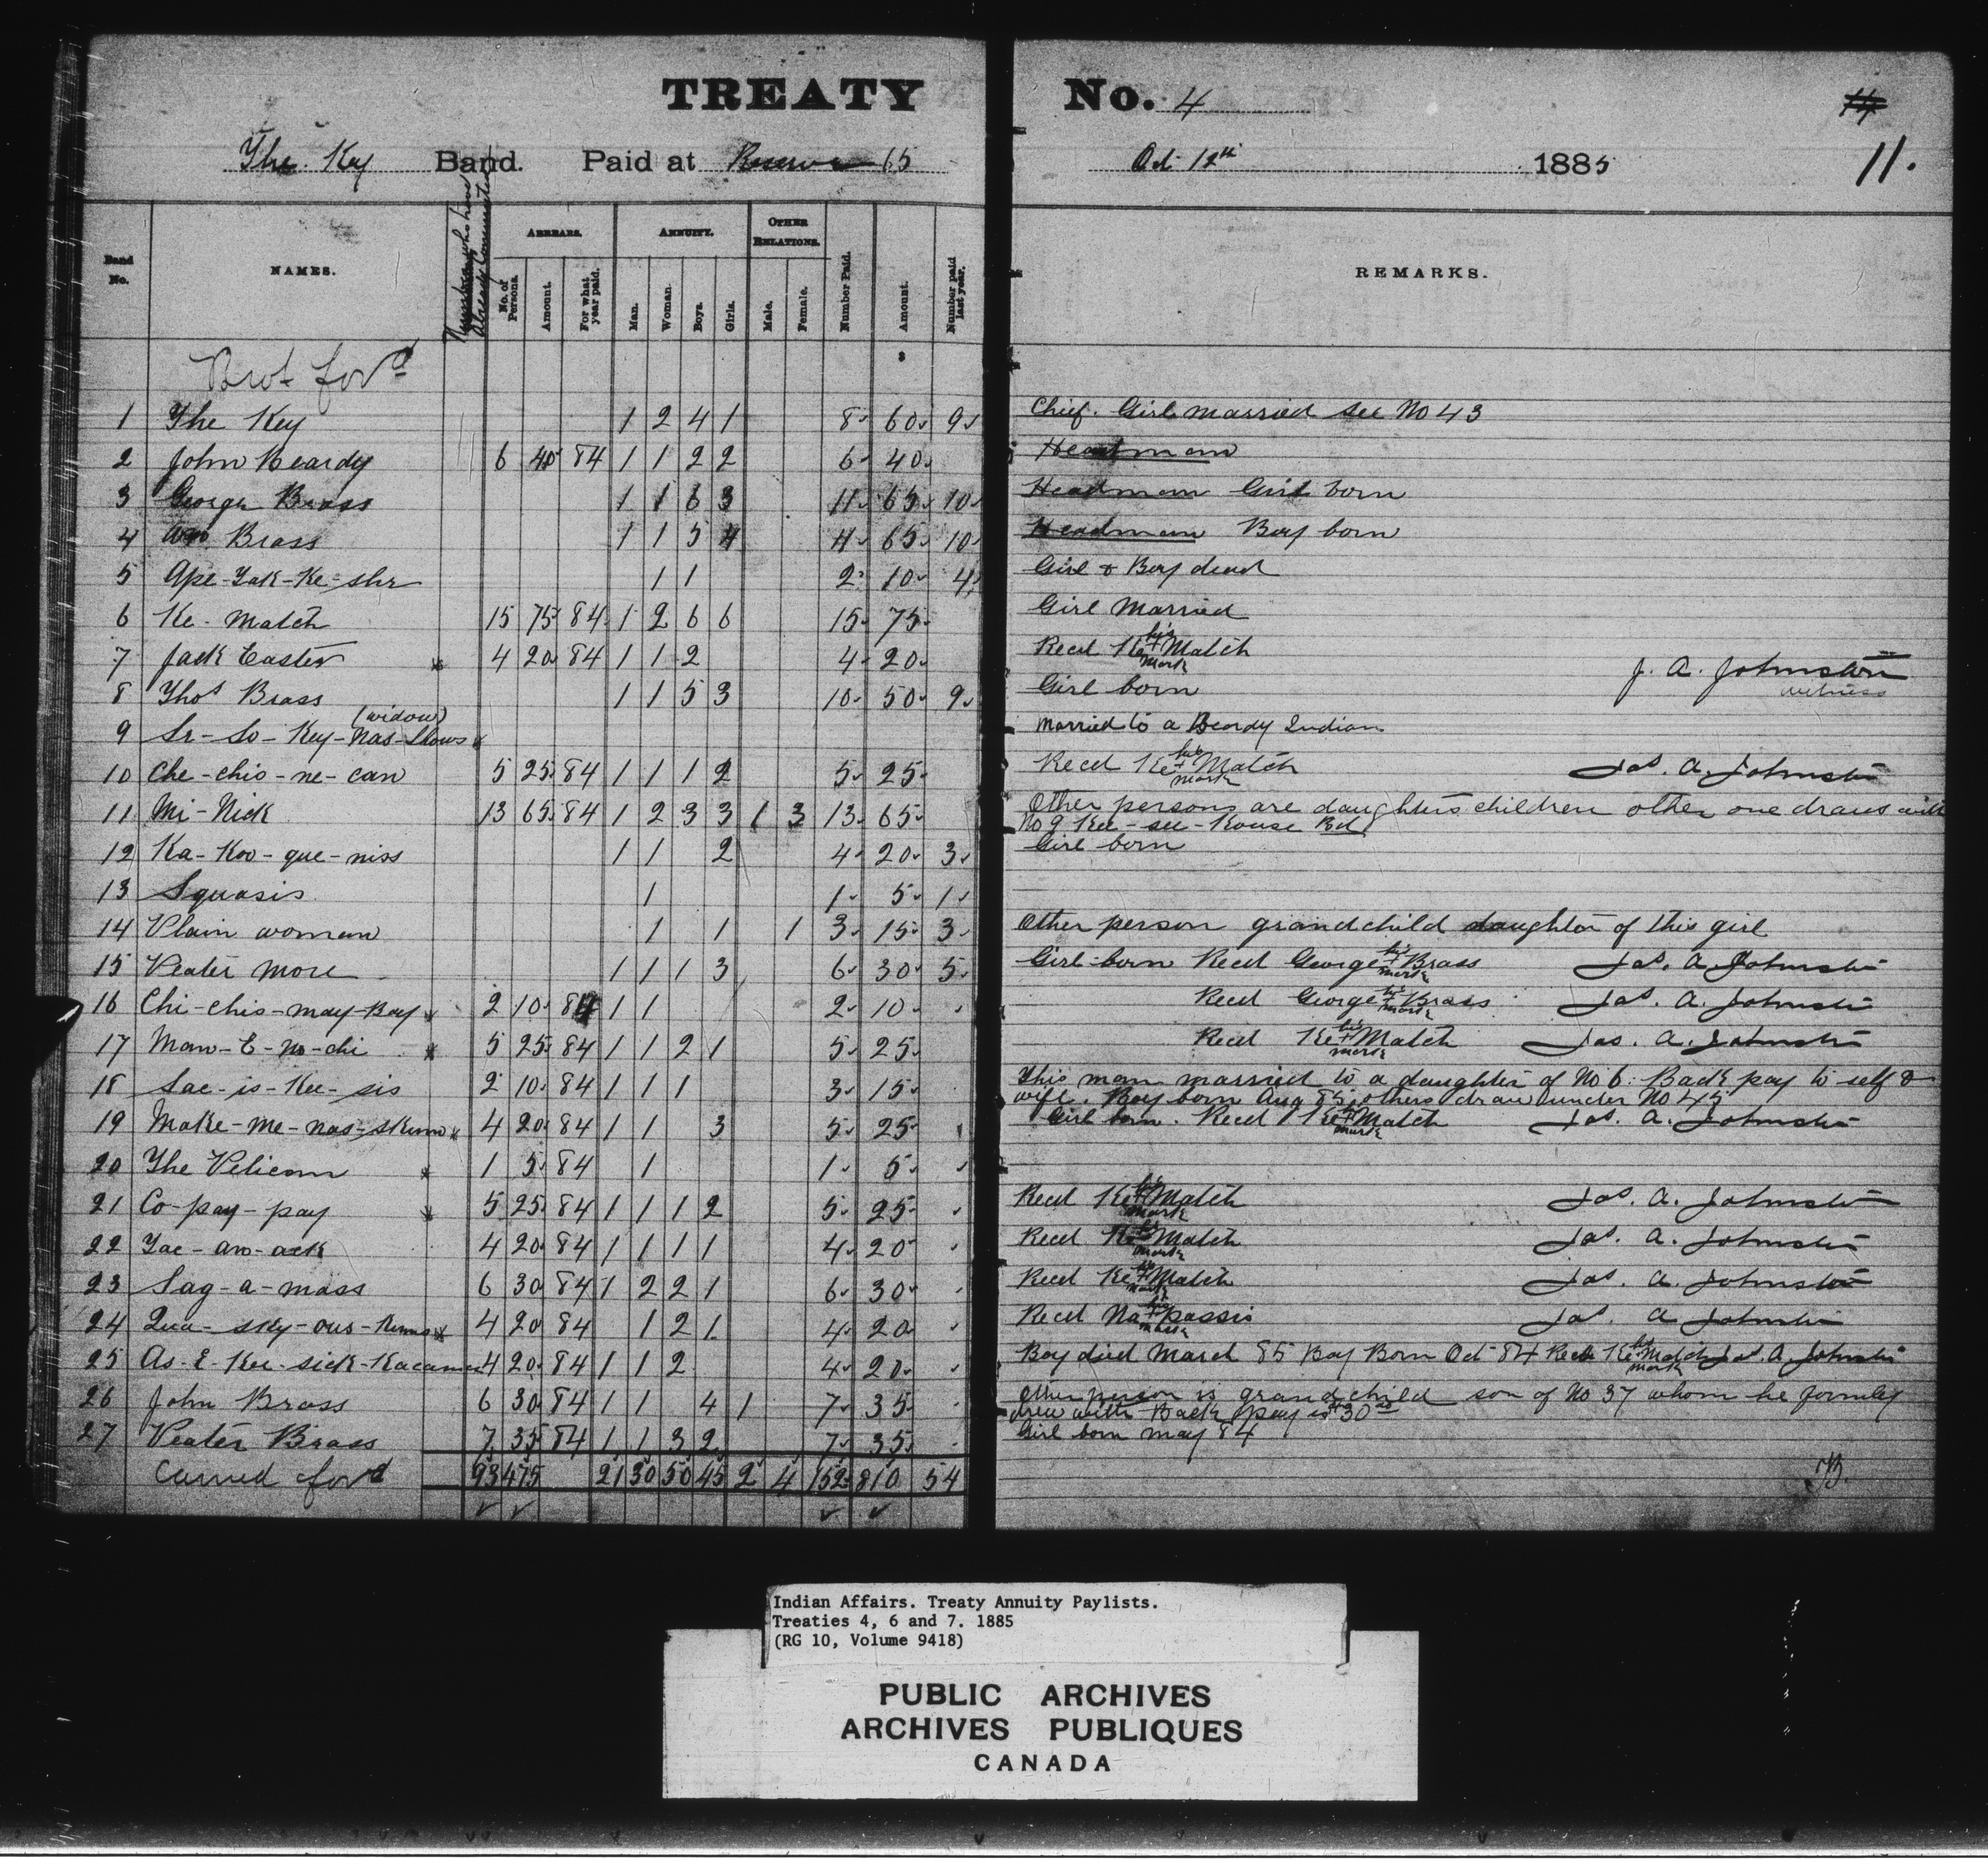 TREATY No. 4
11.
The Key Band. Paid at Reserve 65 Oct 12th 1885
Band No.
NAMES.
ARREARS.
No. of Persons.
Amount.
For what year paid.
ANNUITY.
Man.
Woman.
Boys.
Girls.
OTHER RELATIONS.
Male.
Female.
Number Paid.
Amount.
Number paid last year.
REMARKS.
Brot ford
1 The Key 1 2 4 1 8 60 9 Chief. Girl married see No 43
2 John Beardy 6 40 84 1 1 2 2 6 40 Headman
3 George Brass 1 1 6 3 11 65 10 Headman Girl born
4 Wm Brass 1 1 5 4 11 65 10 Headman Boy born
5 Ape-Yak-Ke-she 1 1 2 10 4 Girl & Boy dead
6 Ke-Match 15 75 84 1 2 6 6 15 75 Girl Married
7 Jack Easter 4 20 84 1 1 2 4 20 Recd Ke his + mark Match J. A. Johnston witness
8 Thos Brass 1 1 5 3 10 50 9 Girl born
9 Sr-So-Key-Nas-Shows (widow) Married to a Beardy Indian
10 Che-chis-ne-can 5 25 84 1 1 1 2 5 25 Recd Ke his + mark Match Jas. A. Johnston
11 Mi-Nick 13 65 84 1 2 3 3 1 3 13 65 Other persons are daughters children other one draws with
No 9 Kee-see-Kouse Bd
12 Ka-Koo-que-niss 1 1 2 4 20 3 Girl born
13 Squasis 1 1 5 1
14 Plain woman 1 1 1 3 15 3 Other person grandchild daughter of this girl
15 Peater More 1 1 1 3 6 30 5 Girl born Recd George his + mark Brass Jas. A. Johnston
16 Chi-chis-may-Bay 2 10 84 1 1 2 10 Recd George his + mark Brass Jas. A. Johnston
17 Man-E-No-chi 5 25 84 1 1 2 1 5 25 Recd Ke his + mark Match Jas. A. Johnston
18 Sac-is-Kee-sis 2 10 84 1 1 1 3 15 This man married to a daughter of No 6. Back pay to self &
wife. Boy born Aug 85, others draw under No 45
19 Make-Me-nas-skumo 4 20 84 1 1 3 5 25 Girl born. Recd Ke his + mark Match Jas. A. Johnston
20 The Pelican 1 5 84 1 1 5
21 Co-pay-pay 5 25 84 1 1 1 2 5 25 Recd Ke his + mark Match Jas. A. Johnston
22 Yac-an-ack 4 20 84 1 1 1 1 4 20 Recd Ke his + mark Match Jas. A. Johnston
23 Sag-a-mass 6 30 84 1 2 2 1 6 30 Recd Ke his + mark Match Jas. A. Johnston
24 Qua-sky-ous-Kums 4 20 84 1 2 1 4 20 Recd Na his + mark passis Jas. A Johnston
25 As-E-Kee-sick-Kacamu 4 20 84 1 1 2 4 20 Boy died March 85 Boy Born Oct 84 Recd Ke his + mark Match Jas. A. Johnston
26 John Brass 6 30 84 1 1 4 1 7 35 Other person is grandchild son of No 37 whom he formerly
drew with Back pay is $30
27 Peater Brass 7 35 84 1 1 3 2 7 35 Girl born May 84
Carried ford 93 475 21 30 50 45 2 4 152 810 54
Indian Affairs. Treaty Annuity Paylists.
Treaties 4, 6 and 7. 1885
(RG 10, Volume 9418)
PUBLIC ARCHIVES
ARCHIVES PUBLIQUES
CANADA